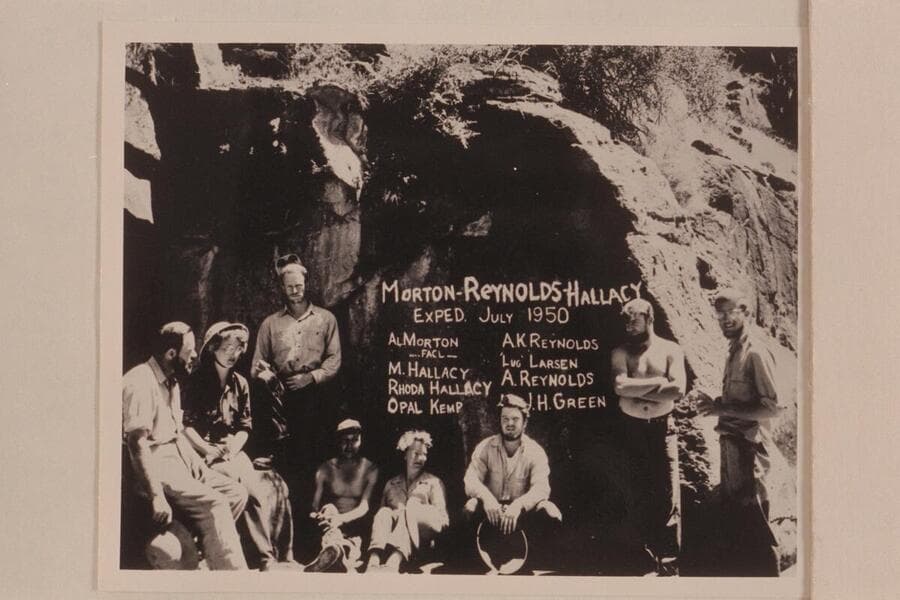 MORTON-REYNOLDS-HALLACY
EXPED. JULY 1950
AL MORTON
A.K REYNOLDS
FACL
'LUG' LARSEN
M. HALLACY
A. REYNOLDS
RHODA HALLACY
J.H. GREEN
OPAL KEMP